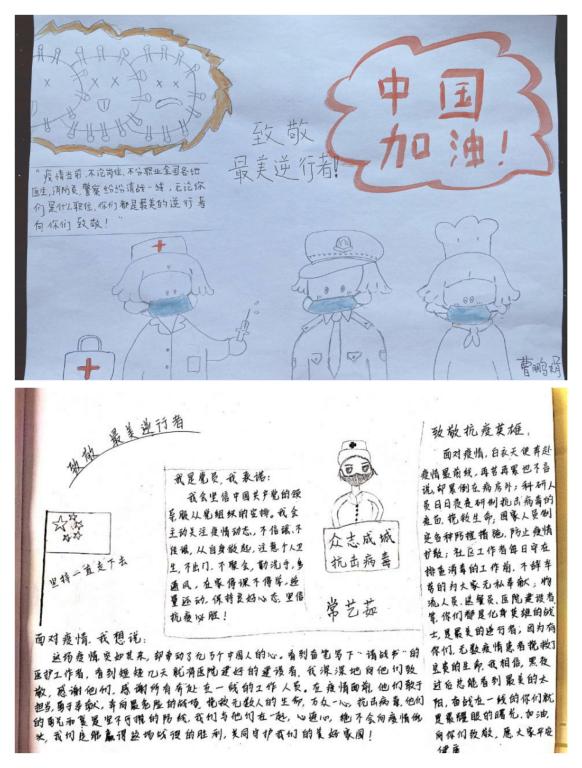 中国
加油!
致敬
最美逆行者!
"疫情当前,不论岗位,不分职业全国各地
医生,消防员,警察纷纷请战一线,无论你
们是什么职位,你们都是最美的逆行者
向你们致敬!"
曹鹏娟
致敬 最美逆行者
坚持一直走下去
我是党员,我表态:
我会坚信中国共产党的领
导服从党组织的安排。我会
主动关注疫情动态,不信谣、不
传谣,从自身做起,注意个人卫
生,不出门、不聚会,勤洗手,多
通风,在家停课不停学,适
量运动,保持良好心态,坚信
抗疫必胜!
众志成城
抗击病毒
常艺茹
面对疫情,我想说:
这场疫情突如其来,却牵动了九万个中国人的心。看到首笔写下"请战书"的
医护工作者,看到短短几天就将医院建好的建设者,我深深地向他们致
敬,感谢他们,感谢所有奔赴在一线的工作人员。在疫情面前他们敢于
担当,勇于奉献,奔向最危险的战场,挽救无数人的生命,万众一心,抗击病毒,他们
的勇气和
防线,我们与他们在一起,心连心,绝不会向疫情低
头,我们定能赢得这场战役的胜利,共同守护我们的美好家园!
致敬抗疫英雄,
面对疫情,白衣天使奔赴
疫情最前线,再苦再累也不苦
说,却累倒在病房外;科研人
员日日夜夜研制抗击病毒的
疫苗,挽救生命;国家人员制
定各种防控措施,防止疫情
扩散;社区工作者每日守在
排查消毒的工作前,不辞辛
苦的为大家无私奉献;物
流人员、运警员、医院建设者
等,你们都是化身英雄的战
士,是最美的逆行者;因为有
你们,无数疫情患者挽救了
宝贵的生命,我相信,黑夜
过后总能看到最美的太
阳,奋战在一线的你们就
是最耀眼的曙光,加油,
向你们致敬,愿大家平安
健康